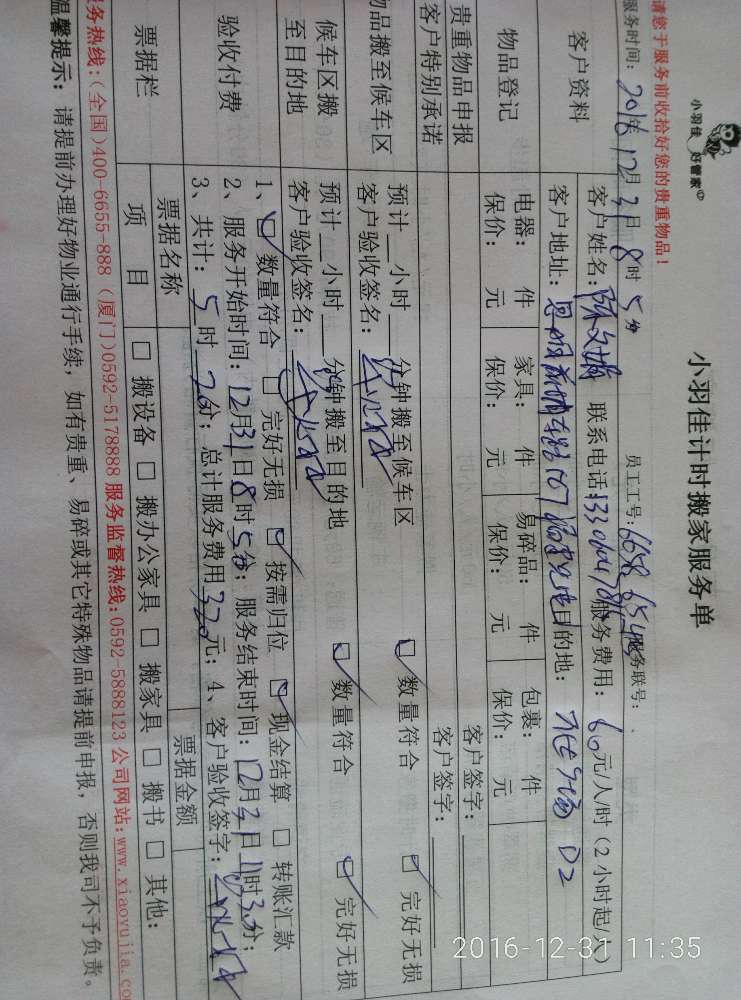 小羽佳 好管家
小羽佳计时搬家服务单
请您于服务前收拾好您的贵重物品!
服务时间: 2016年12月31日8时5分 员工工号: 6658 服务联号:
客户资料
客户姓名: 联系电话: 服务费用: 60元/人/时(2小时起/人)
客户地址: 目的地: D2
物品登记
电器: 件 家具: 件 易碎品: 件 包裹: 件
保价: 元 保价: 元 保价: 元 保价: 元
贵重物品申报 客户签字:
客户特别承诺 客户签字:
物品搬至候车区
预计 小时 分钟搬至候车区 数量符合 完好无损
客户验收签名:
候车区搬至目的地
预计 小时 分钟搬至目的地 数量符合 完好无损
客户验收签名:
验收付费
1、 数量符合 完好无损 按需归位 现金结算 转账汇款
2、服务开始时间: 12月31日8时5分; 服务结束时间: 12月31日11时35分;
3、共计: 5时20分; 总计服务费用320元; 4、客户验收签字:
票据栏
票据名称 票据金额
项目 搬设备 搬办公家具 搬家具 搬书 其他:
服务热线:(全国)400-6655-888 (厦门)0592-5178888 服务监督热线:0592-5888123 公司网站:www.xiaoyujia.co
温馨提示: 请提前办理好物业通行手续, 如有贵重、易碎或其它特殊物品请提前申报, 否则我司不予负责。
2016-12-31 11:35